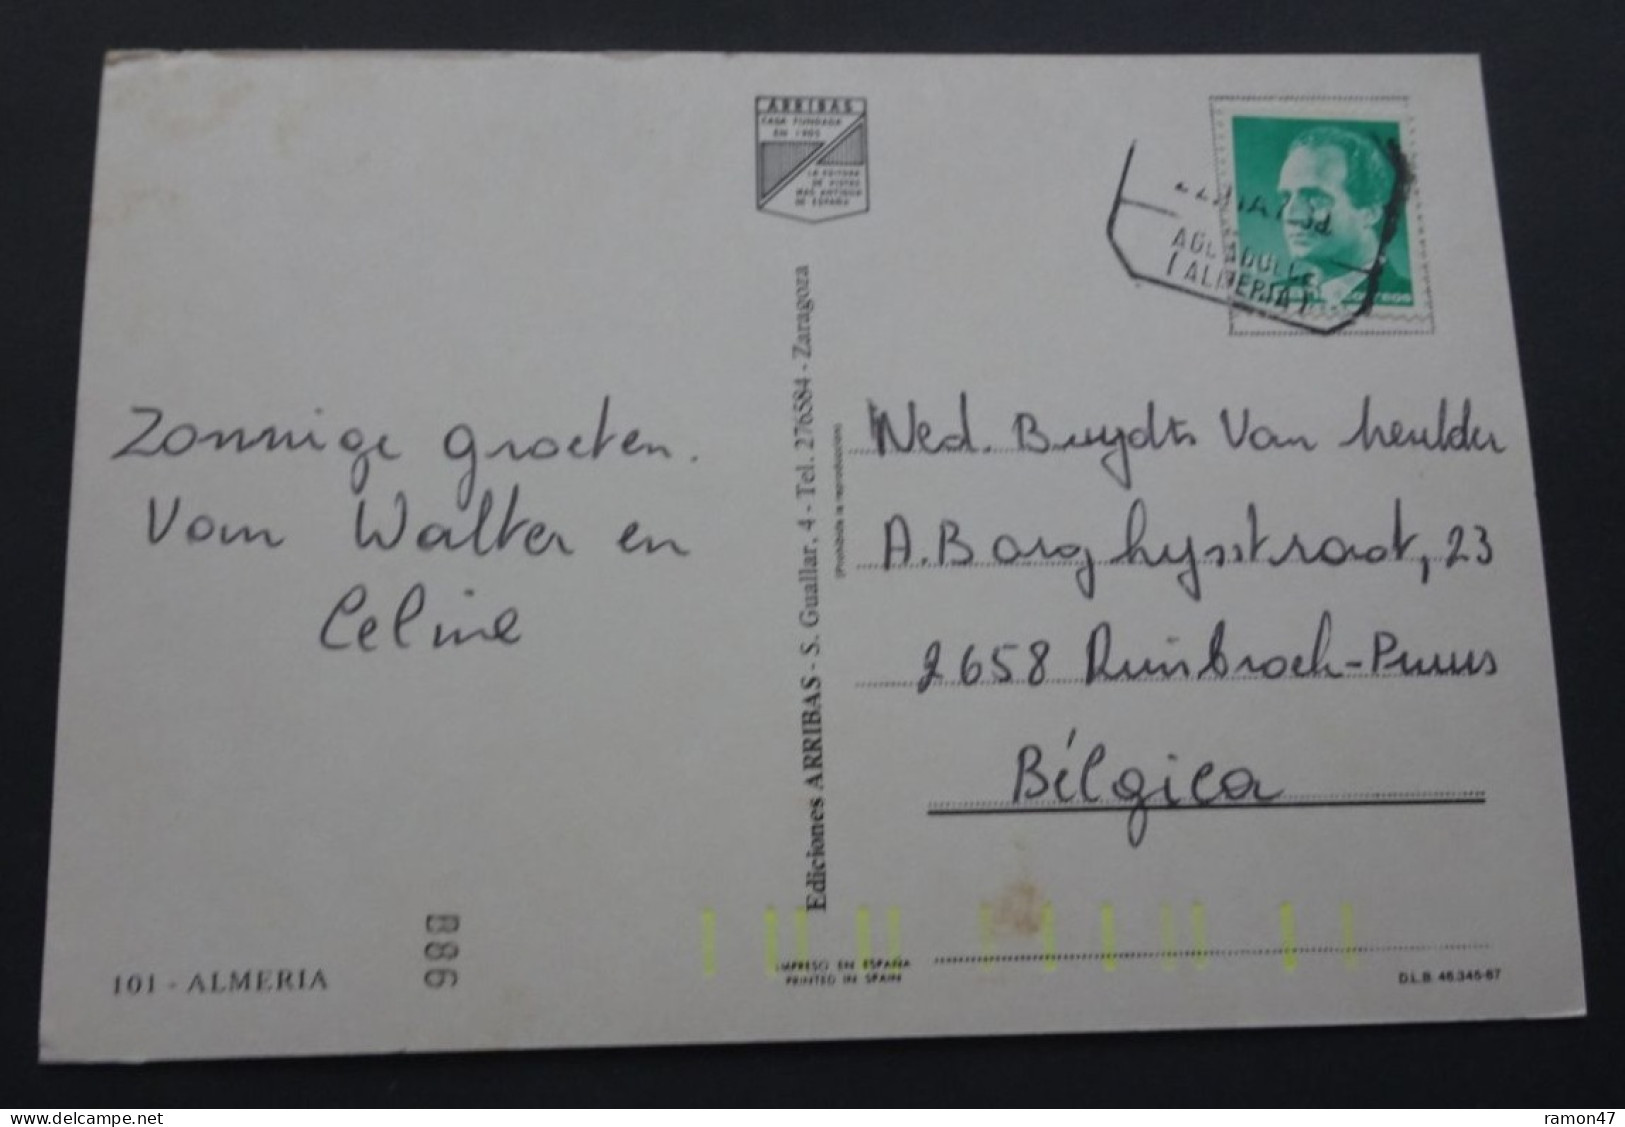 ARRIBAS
CASA FUNDADA
EN 1905
LA EDITORA
DE VISTAS
MAS ANTIGUA
DE ESPAÑA
(ALMERIA)
correos
Zonnige groeten.
Van Walter en
Celine
Ediciones ARRIBAS - S. Guallar, 4 - Tel. 276584 - Zaragoza
(Prohibida la reproducción)
Ned. Bruydts Van heulder
A. Borghysstraat, 23
2658 Ruisbroek-Puurs
Bélgica
101 - ALMERIA
B86
IMPRESO EN ESPAÑA
PRINTED IN SPAIN
D.L.B. 46.345-67
www.delcampe.net
ramon47